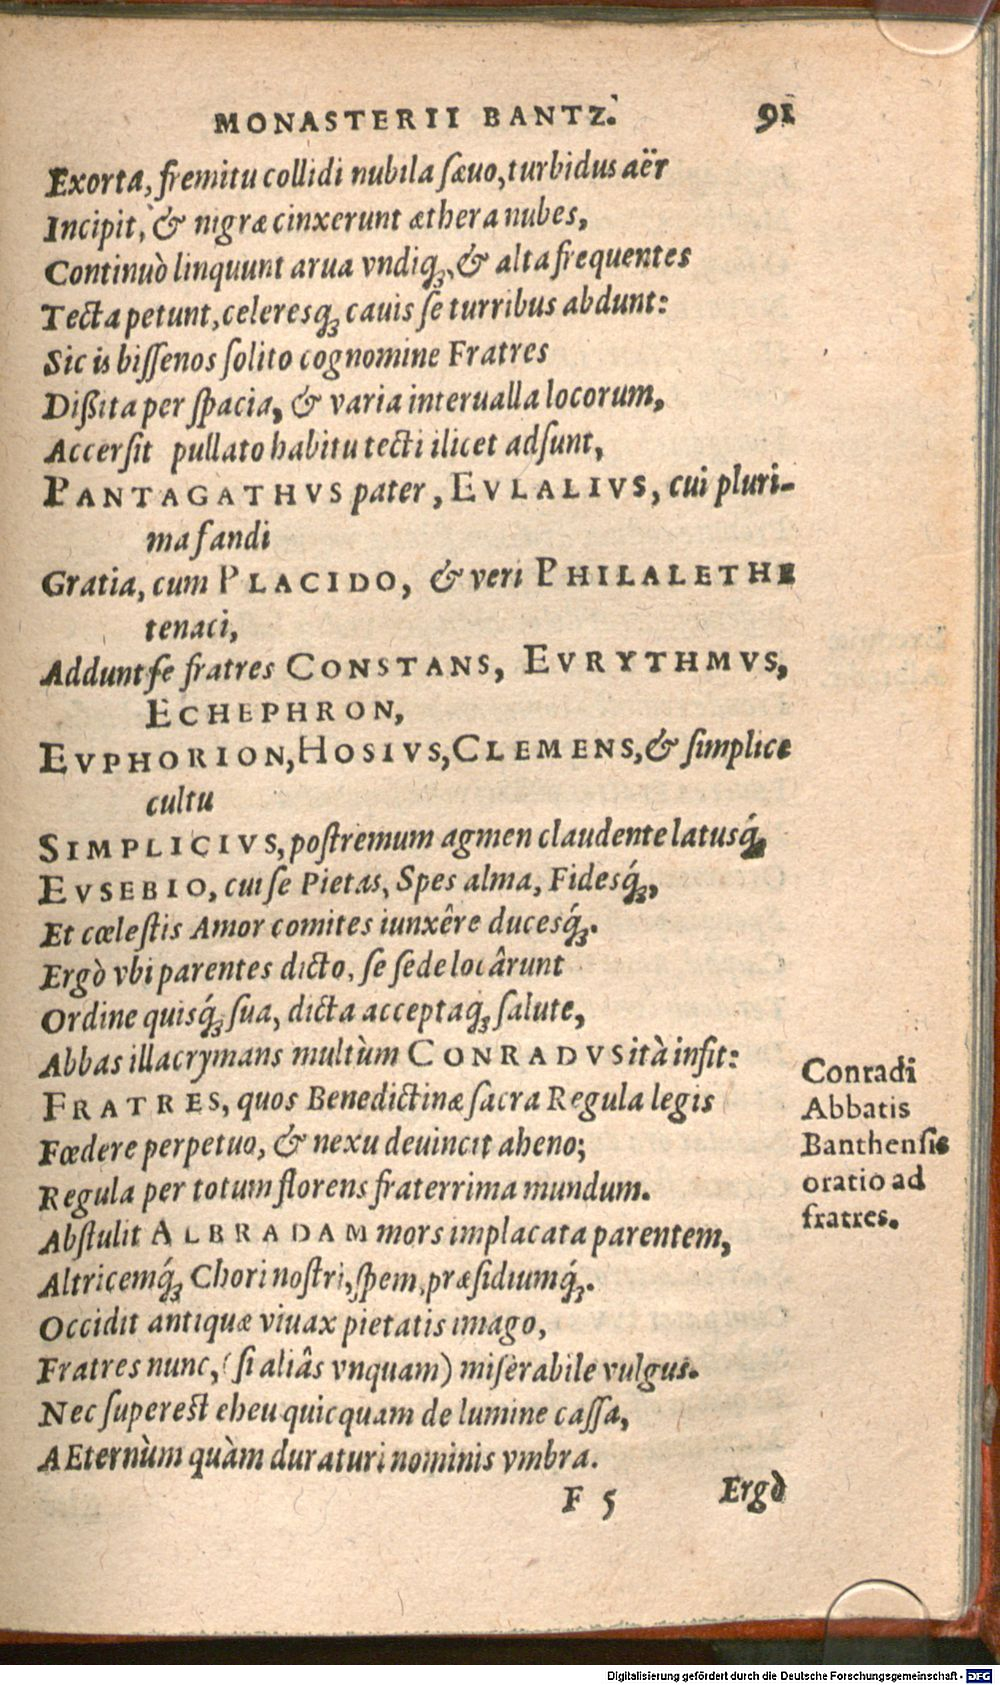 MONASTERII BANTZ. 91
Exorta, fremitu collidi nubila sæuo, turbidus aër
Incipit, & nigræ cinxerunt æthera nubes,
Continuò linquunt arua vndiq́ꝫ, & alta frequentes
Tecta petunt, celeresq́ꝫ cauis se turribus abdunt:
Sic is bissenos solito cognomine Fratres
Dißita per spacia, & varia interualla locorum,
Accersit pullato habitu tecti ilicet adsunt,
PANTAGATHVS pater, EVLALIVS, cui pluri-
ma fandi
Gratia, cum PLACIDO, & veri PHILALETHE
tenaci,
Addunt se fratres CONSTANS, EVRYTHMVS,
ECHEPHRON,
EVPHORION, HOSIVS, CLEMENS, & simplice
cultu
SIMPLICIVS, postremum agmen claudente latusq́ꝫ
EVSEBIO, cui se Pietas, Spes alma, Fidesq́ꝫ,
Et cœlestis Amor comites iunxêre ducesq́ꝫ.
Ergò vbi parentes dicto, se sede locârunt
Ordine quisq́ꝫ sua, dicta acceptaq́ꝫ salute,
Abbas illacrymans multùm CONRADVS ità infit:
FRATRES, quos Benedictinæ sacra Regula legis
Fœdere perpetuo, & nexu deuincit aheno;
Regula per totum florens fraterrima mundum.
Abstulit ALBRADAM mors implacata parentem,
Altricemq́ꝫ Chori nostri, spem, præsidiumq́ꝫ.
Occidit antiquæ viuax pietatis imago,
Fratres nunc, (si aliâs vnquam) miserabile vulgus.
Nec superest eheu quicquam de lumine cassa,
AEternùm quàm duraturi nominis vmbra.
F 5 Ergò
Conradi
Abbatis
Banthensis
oratio ad
fratres.
Digitalisierung gefördert durch die Deutsche Forschungsgemeinschaft - DFG